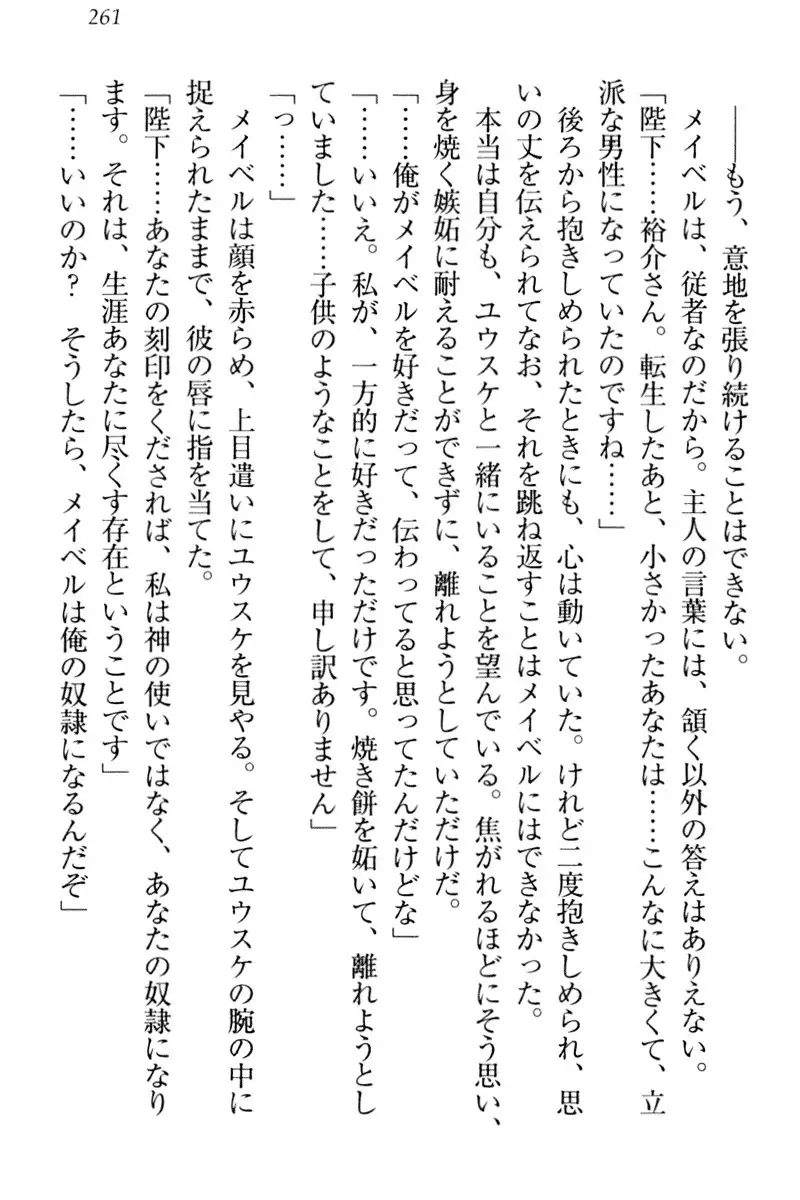 261
――もう、意地を張り続けることはできない。
メイベルは、従者なのだから。主人の言葉には、頷く以外の答えはありえない。
「陛下……裕介さん。転生したあと、小さかったあなたは……こんなに大きくて、立
派な男性になっていたのですね……」
後ろから抱きしめられたときにも、心は動いていた。けれど二度抱きしめられ、思
いの丈を伝えられてなお、それを跳ね返すことはメイベルにはできなかった。
本当は自分も、ユウスケと一緒にいることを望んでいる。焦がれるほどにそう思い、
身を焼く嫉妬に耐えることができずに、離れようとしていただけだ。
「……俺がメイベルを好きだって、伝わってると思ってたんだけどな」
「……いいえ。私が、一方的に好きだっただけです。焼き餅を妬いて、離れようとし
ていました……子供のようなことをして、申し訳ありません」
「っ……」
メイベルは顔を赤らめ、上目遣いにユウスケを見やる。そしてユウスケの腕の中に
捉えられたままで、彼の唇に指を当てた。
「陛下……あなたの刻印をくだされば、私は神の使いではなく、あなたの奴隷になり
ます。それは、生涯あなたに尽くす存在ということです」
「……いいのか？　そうしたら、メイベルは俺の奴隷になるんだぞ」